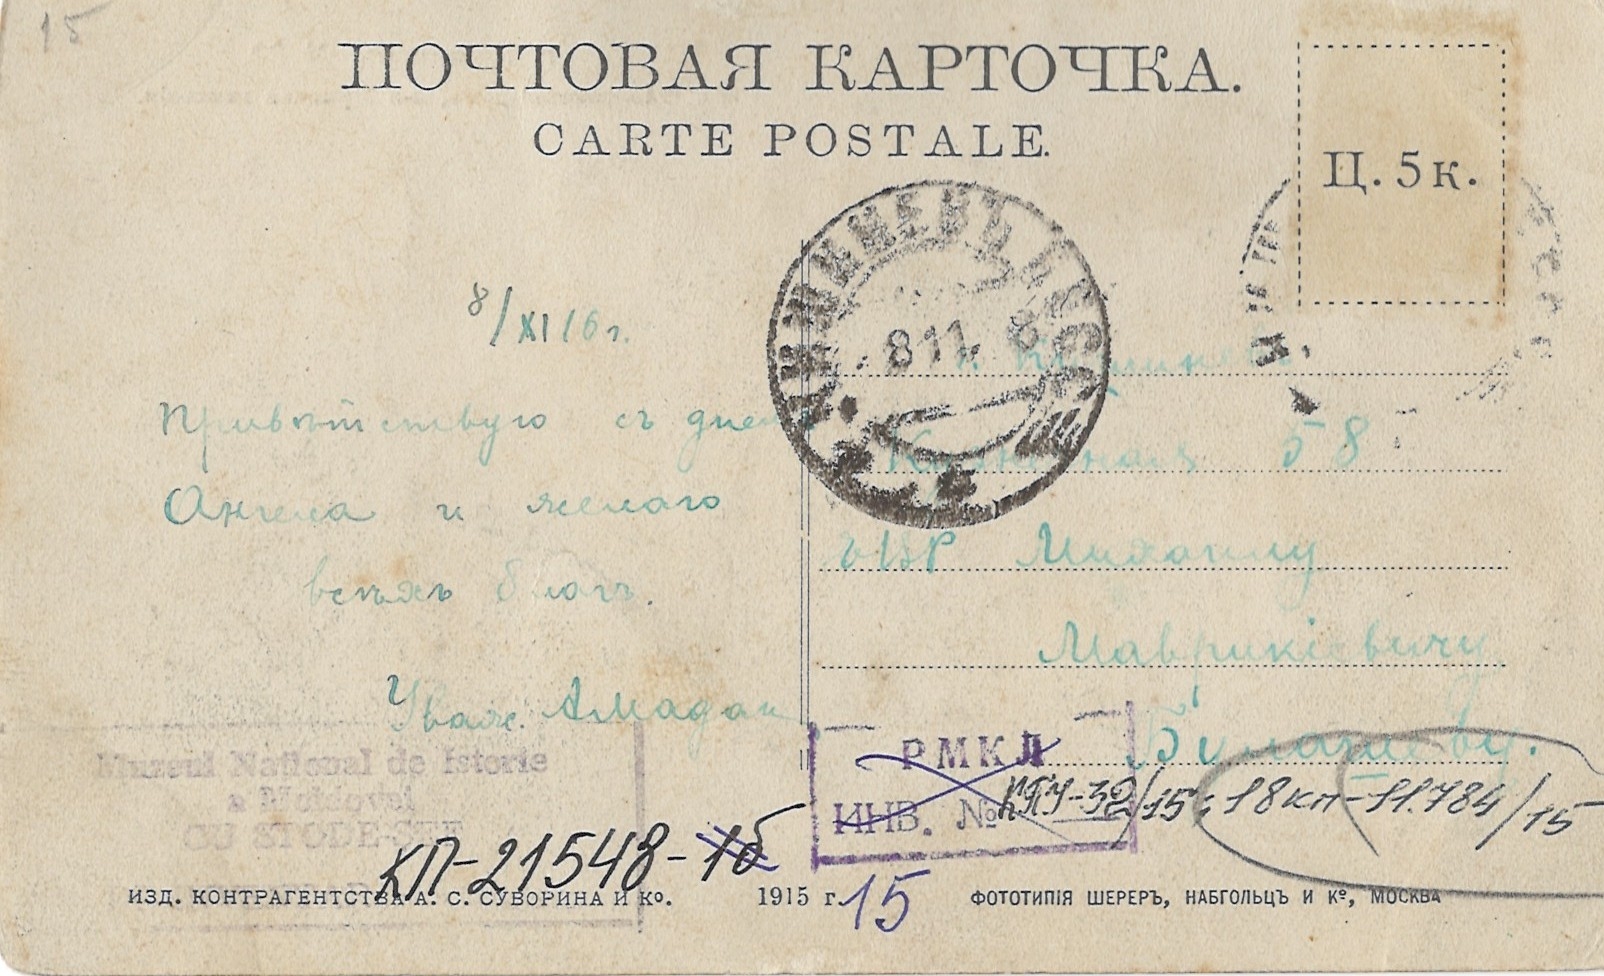 15
ПОЧТОВАЯ КАРТОЧКА.
CARTE POSTALE.
Ц. 5 к.
КИШИНЕВЪ БЕСС.
8 11
8/XI 16 г.
Привѣтствую съ днемъ
Ангела и желаю
всѣхъ благъ.
Уваж.
58
ЕВР Михаилу
Маврикіевичу
Muzeul Național de Istorie
a Moldovei
РМКЛ
ИНВ. №
КПУ-32/15; 18кп-11.784/15
КП-21548-15
15
ИЗД. КОНТРАГЕНТСТВА А. С. СУВОРИНА И Кº. 1915 г. ФОТОТИПІЯ ШЕРЕРЪ, НАБГОЛЬЦЪ И Кº, МОСКВА